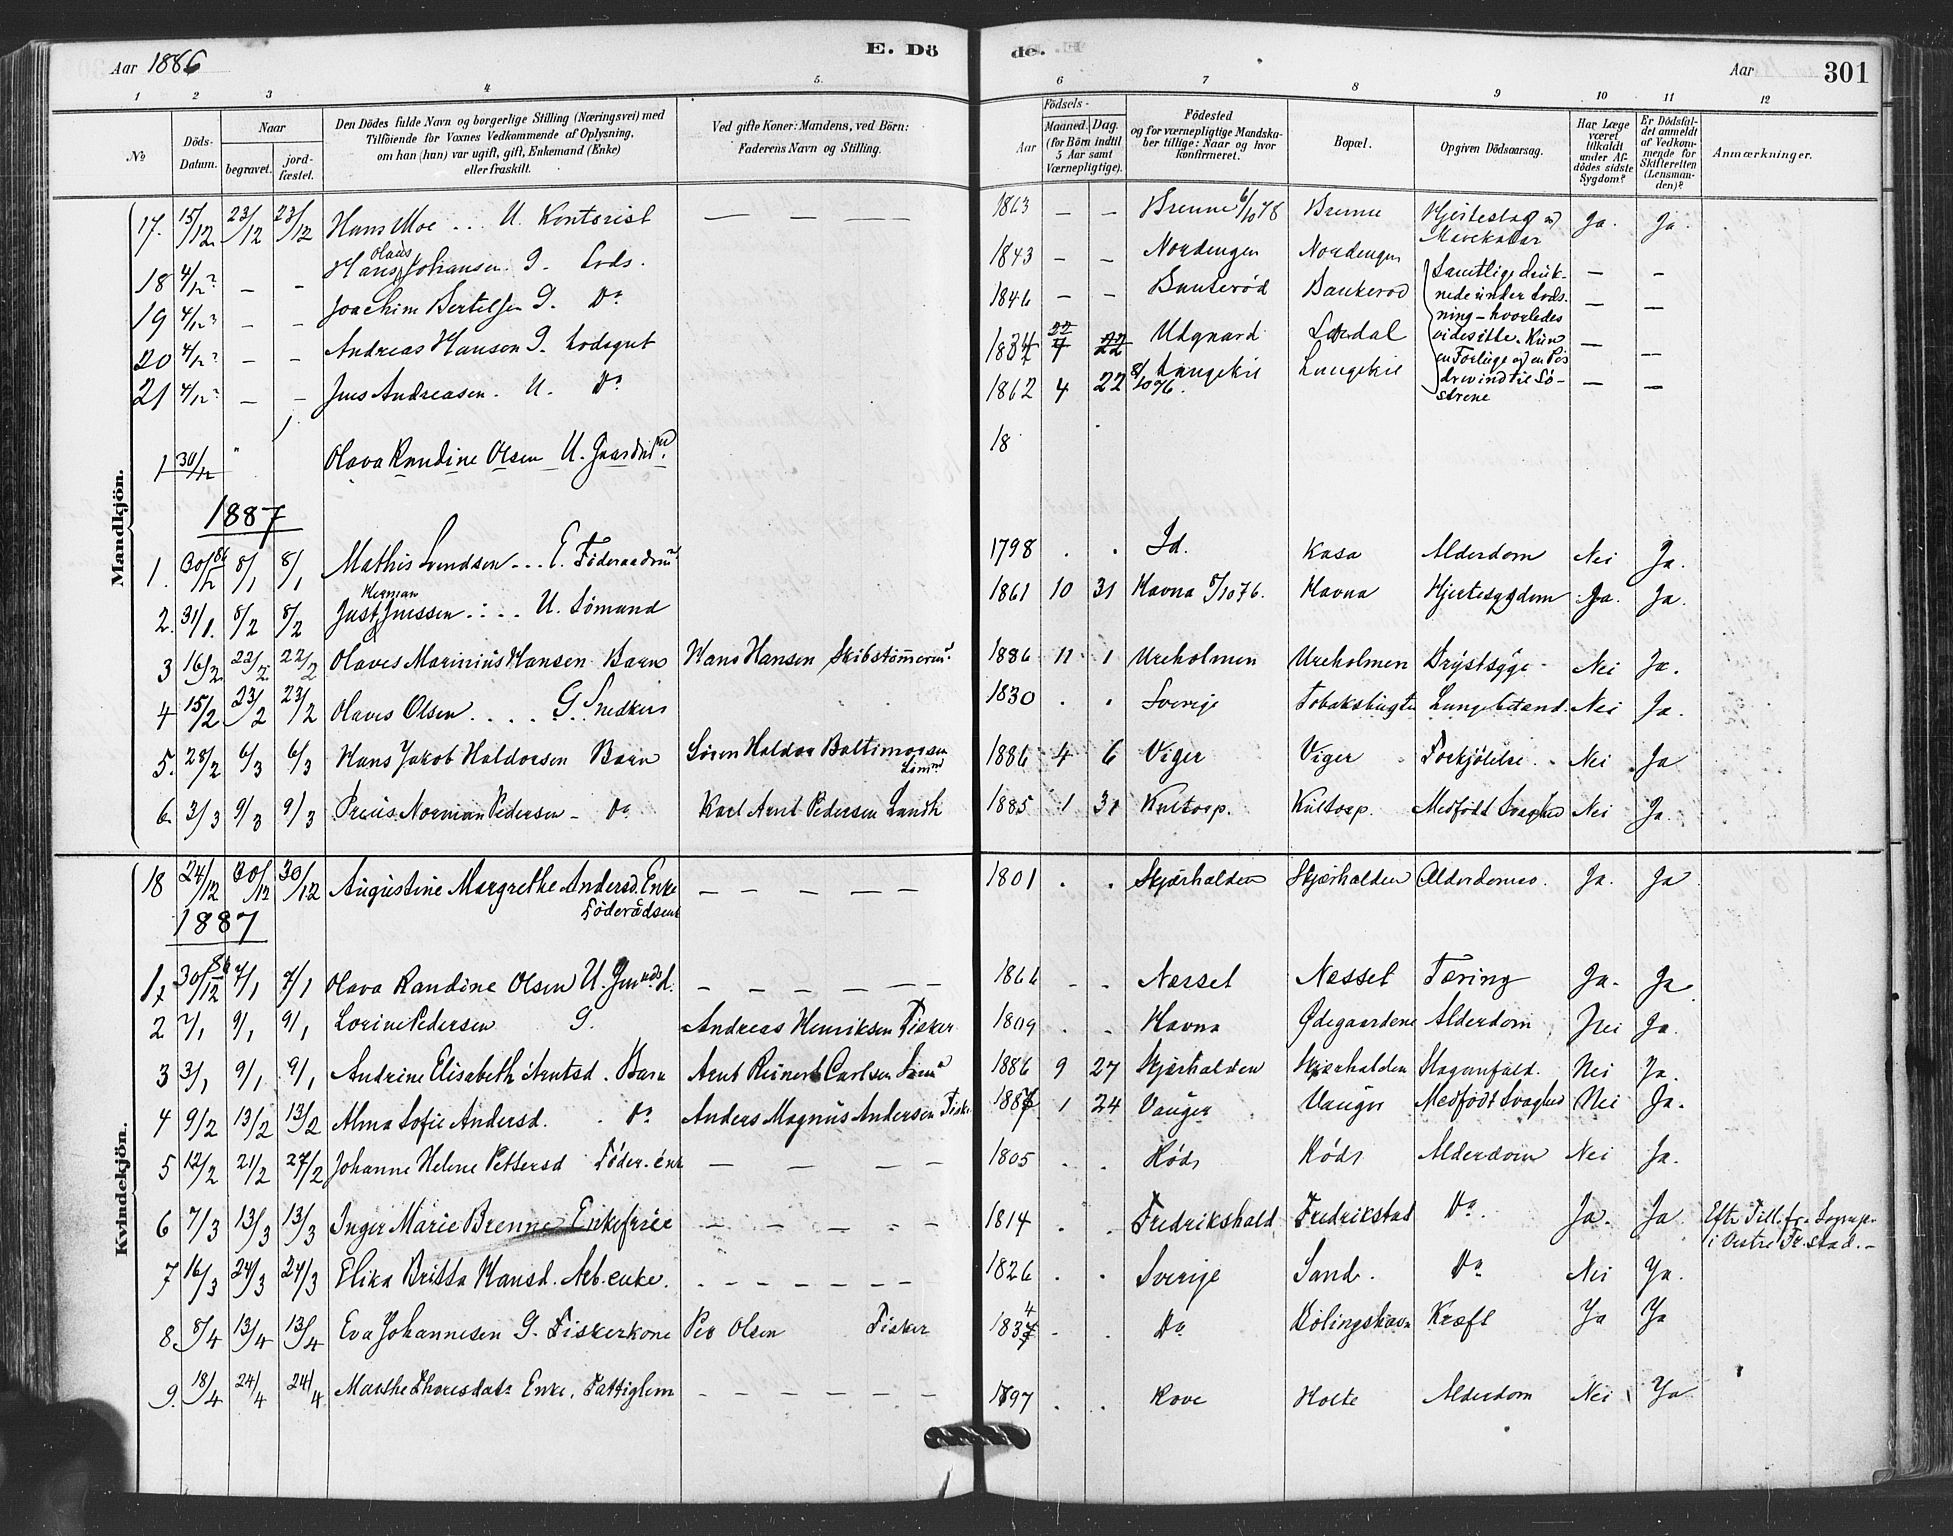 Aar 1886 E. Dö de. Aar 301
1 2 3 4 5. 6 7 8 9 10 11 12
No
Döds-Datum.
Naar
begravet.
jord-fæstet.
Den Dödes fulde Navn og borgerlige Stilling (Næringsvei) med
Tilföiende for Voxnes Vedkommende af Oplysning,
om han (hun) var ugift, gift, Enkemand (Enke)
eller fraskilt.
Ved gifte Koner: Mandens, ved Börn:
Faderens Navn og Stilling.
Födsels-
Aar
Maaned. Dag.
(for Börn indtil
5 Aar samt
Værnepligtige).
Födested
og for værnepligtige Mandska-
ber tillige: Naar og hvor
konfirmeret.
Bopæl.
Opgiven Dödsaarsag.
Har Læge
været
tilkaldt
under Af-
dödes sidste
Sygdom?
Er Dödsfal-
det anmeldt
af Vedkom-
mende for
Skifteretten
(Lensman-
den)?
Anmærkninger.
Mandkjön.
17. 15/12 23/12 23/12 Hans Moe ... U. Kontorist — — — — 1863 — — Brenne 6/10 78 Brenne Hjerteslag og Mavekatar Ja. Ja.
18 4/12? — — Hans Olaus Johansen. G. Lods. 1843 — — Nordengen Nordengen Samtlige druk- — —
19 4/12? — — Joachim Bertelsen G. Do 1846 — — Bankerød Bankerød nede under Lods- — —
ning — hvorledes
20 4/12? — — Andreas Hansen G. Lodsgut Utgaard Lerdal vides ikke. Kun — —
en Forlüge og en Pøs
21 4/12? — — Jens Andreasen. U. Do 1862 4 22 8/10 76. Langekil Langekil drev ind til Sø- — —
strene
1 30/12 " Olava Randine Olsen U. 18
1887
1. 30/12 86 8/1 8/1 Mathis Svendsen ... E. Föderaadsm 1798 . . Id. Kasa Alderdom Nei Ja.
2. 31/1. 8/2 8/2 Just Herman Jnessen .... U. Sömand 1861 10 31 Havna 8/10 76. Havna Hjertesygdom Ja. Ja.
3 16/2 22/2 22/2 Olaves Marinius Hansen Barn Hans Hansen Skibstømerm. 1886 11 1 Ureholmen Ureholmen Brystsyge Nei Ja.
4 15/2 23/2 23/2 Olaves Olsen .... G. Snedker 1830 . . Sverige Tobaksbugten Lungebetænd. Nei Ja.
5. 28/2 6/3 6/3 Hans Jakob Haldorsen Barn Sören Haldor Baltimorsen Sömnd 1886 4 6 Viger Viger Forkjölelse. Nei Ja
6. 3/3 9/3 9/3 Preüs Norman Pedersen — Do Karl Arnt Pedersen Landh 1885 1 31 Kultorp. Kultorp. Medfödt Svaghed Nei Ja.
Kvindekjön.
18 24/12 30/12 30/12 Augustine Margrethe Andersd. Enke — — — — — 1801 . . Skjærhalden Skjærhalden Alderdomss. Ja. Ja
Föderådsenk
1887
1 30/12 86 7/1 7/1 Olava Randine Olsen U. — — — — — — 1866 — — Næsset Næsset Tæring Ja. Ja
2 2/1 9/1 9/1 Lorine Pedersen G. Andreas Henriksen Fisker 1809 . . Havna Ødegaardene Alderdom Nei Ja.
3 3/1 9/1 9/1 Andrine Elisabeth Arntsd. Barn Arnt Reinert Carlsen Söm 1886 9 27 Skjærhalden Skjærhalden Nei Ja.
4 9/2 13/2 13/2 Alma Sofie Andersd. Do Anders Magnus Andersen Fiske 1887 1 24 Vauger Vauger Medfödt Svaghed Nei Ja.
5 12/2 21/2 27/2 Johanne Helene Pettersd Föder.enk — — — — 1805 . . Röds Röds Alderdom Nei Ja.
6 7/3 13/3 13/3 Inger Marie Brenne Enkefrüe — — — — — 1814 . . Fredrikshald Fredrikstad Do. Ja. Ja Eftr Till. fr. Sognep.
i Vestre Fr.stad. —
7 16/3 24/3 24/3 Elika Britta Hansd. Arb.enke. — — — — — — 1826 . . Sverige Sand. Do Nei Ja.
8 8/4 13/4 13/4 Eva Johannesen G. Fiskerkone Per Olsen Fisker 1834 . . Do Kölingshavn Kræft Ja Ja
9. 18/4 24/4 24/4 Marthe Thoresdatr Enke. Fattiglem — — — — — — 1797 . . Rove Holte Alderdom Nei Ja